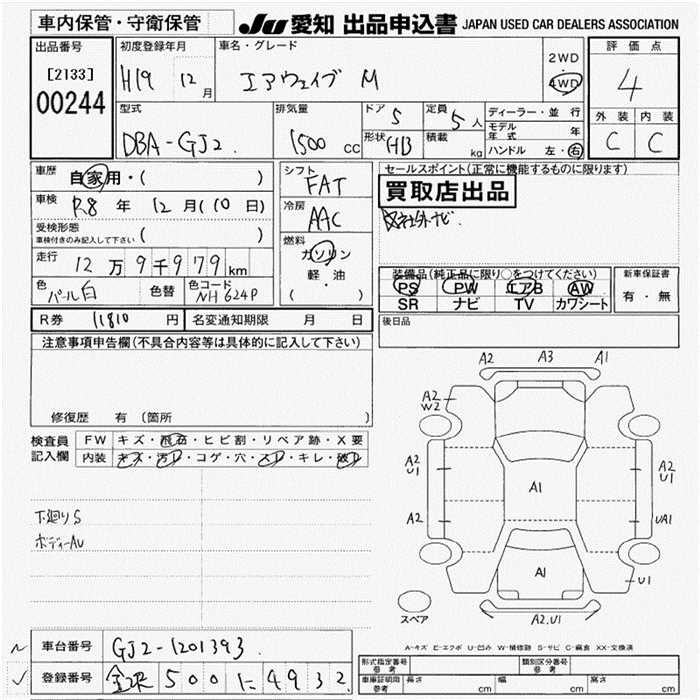 車内保管・守衛保管
JU 愛知 出品申込書 JAPAN USED CAR DEALERS ASSOCIATION
出品番号
[2133]
00244
初度登録年月
H19 12月
車名・グレード
エアウェイブ M
2WD
4WD
評価点
4
外装 内装
C C
型式
DBA-GJ2
排気量
1500 cc
ドア 5
形状 HB
定員 5人
積載 kg
ディーラー・並行
モデル年式 年
ハンドル 左・右
車歴 自家用・( )
車検 R8年 12月(10日)
受検形態
車検付きのみ記入して下さい ( )
走行 12万9千979km
色 パール白
色替
色コード NH624P
シフト FAT
冷房 AAC
燃料
ガソリン
軽・油
( )
セールスポイント(正常に機能するものに限ります)
買取店出品
社外ナビ
装備品(純正品に限り○をつけてください)
PS PW エアB AW
SR ナビ TV カワシート
新車保証書
有・無
R券 11810円
名変通知期限 月 日
後日品
注意事項申告欄(不具合内容等は具体的に記入して下さい)
修復歴 有(箇所
検査員記入欄
FW キズ・飛石・ヒビ割・リペア跡・X要
内装 キズ・汚レ・コゲ・穴・スレ・キレ・破レ
下廻りS
ボディーAU
A2 A3 A1
A2
W2
A2
U1
A2
U1
A1
A2
UA1
A1
U1
A2.U1
スペア
A-キズ E-エクボ U-凹み W-補修跡 S-サビ C-腐食 XX-交換済
車台番号 GJ2-1201393
登録番号 金沢500に4932
形式指定番号
参考
類別区分番号
参考
車庫証明用
参考
長さ cm 幅 cm 高さ cm